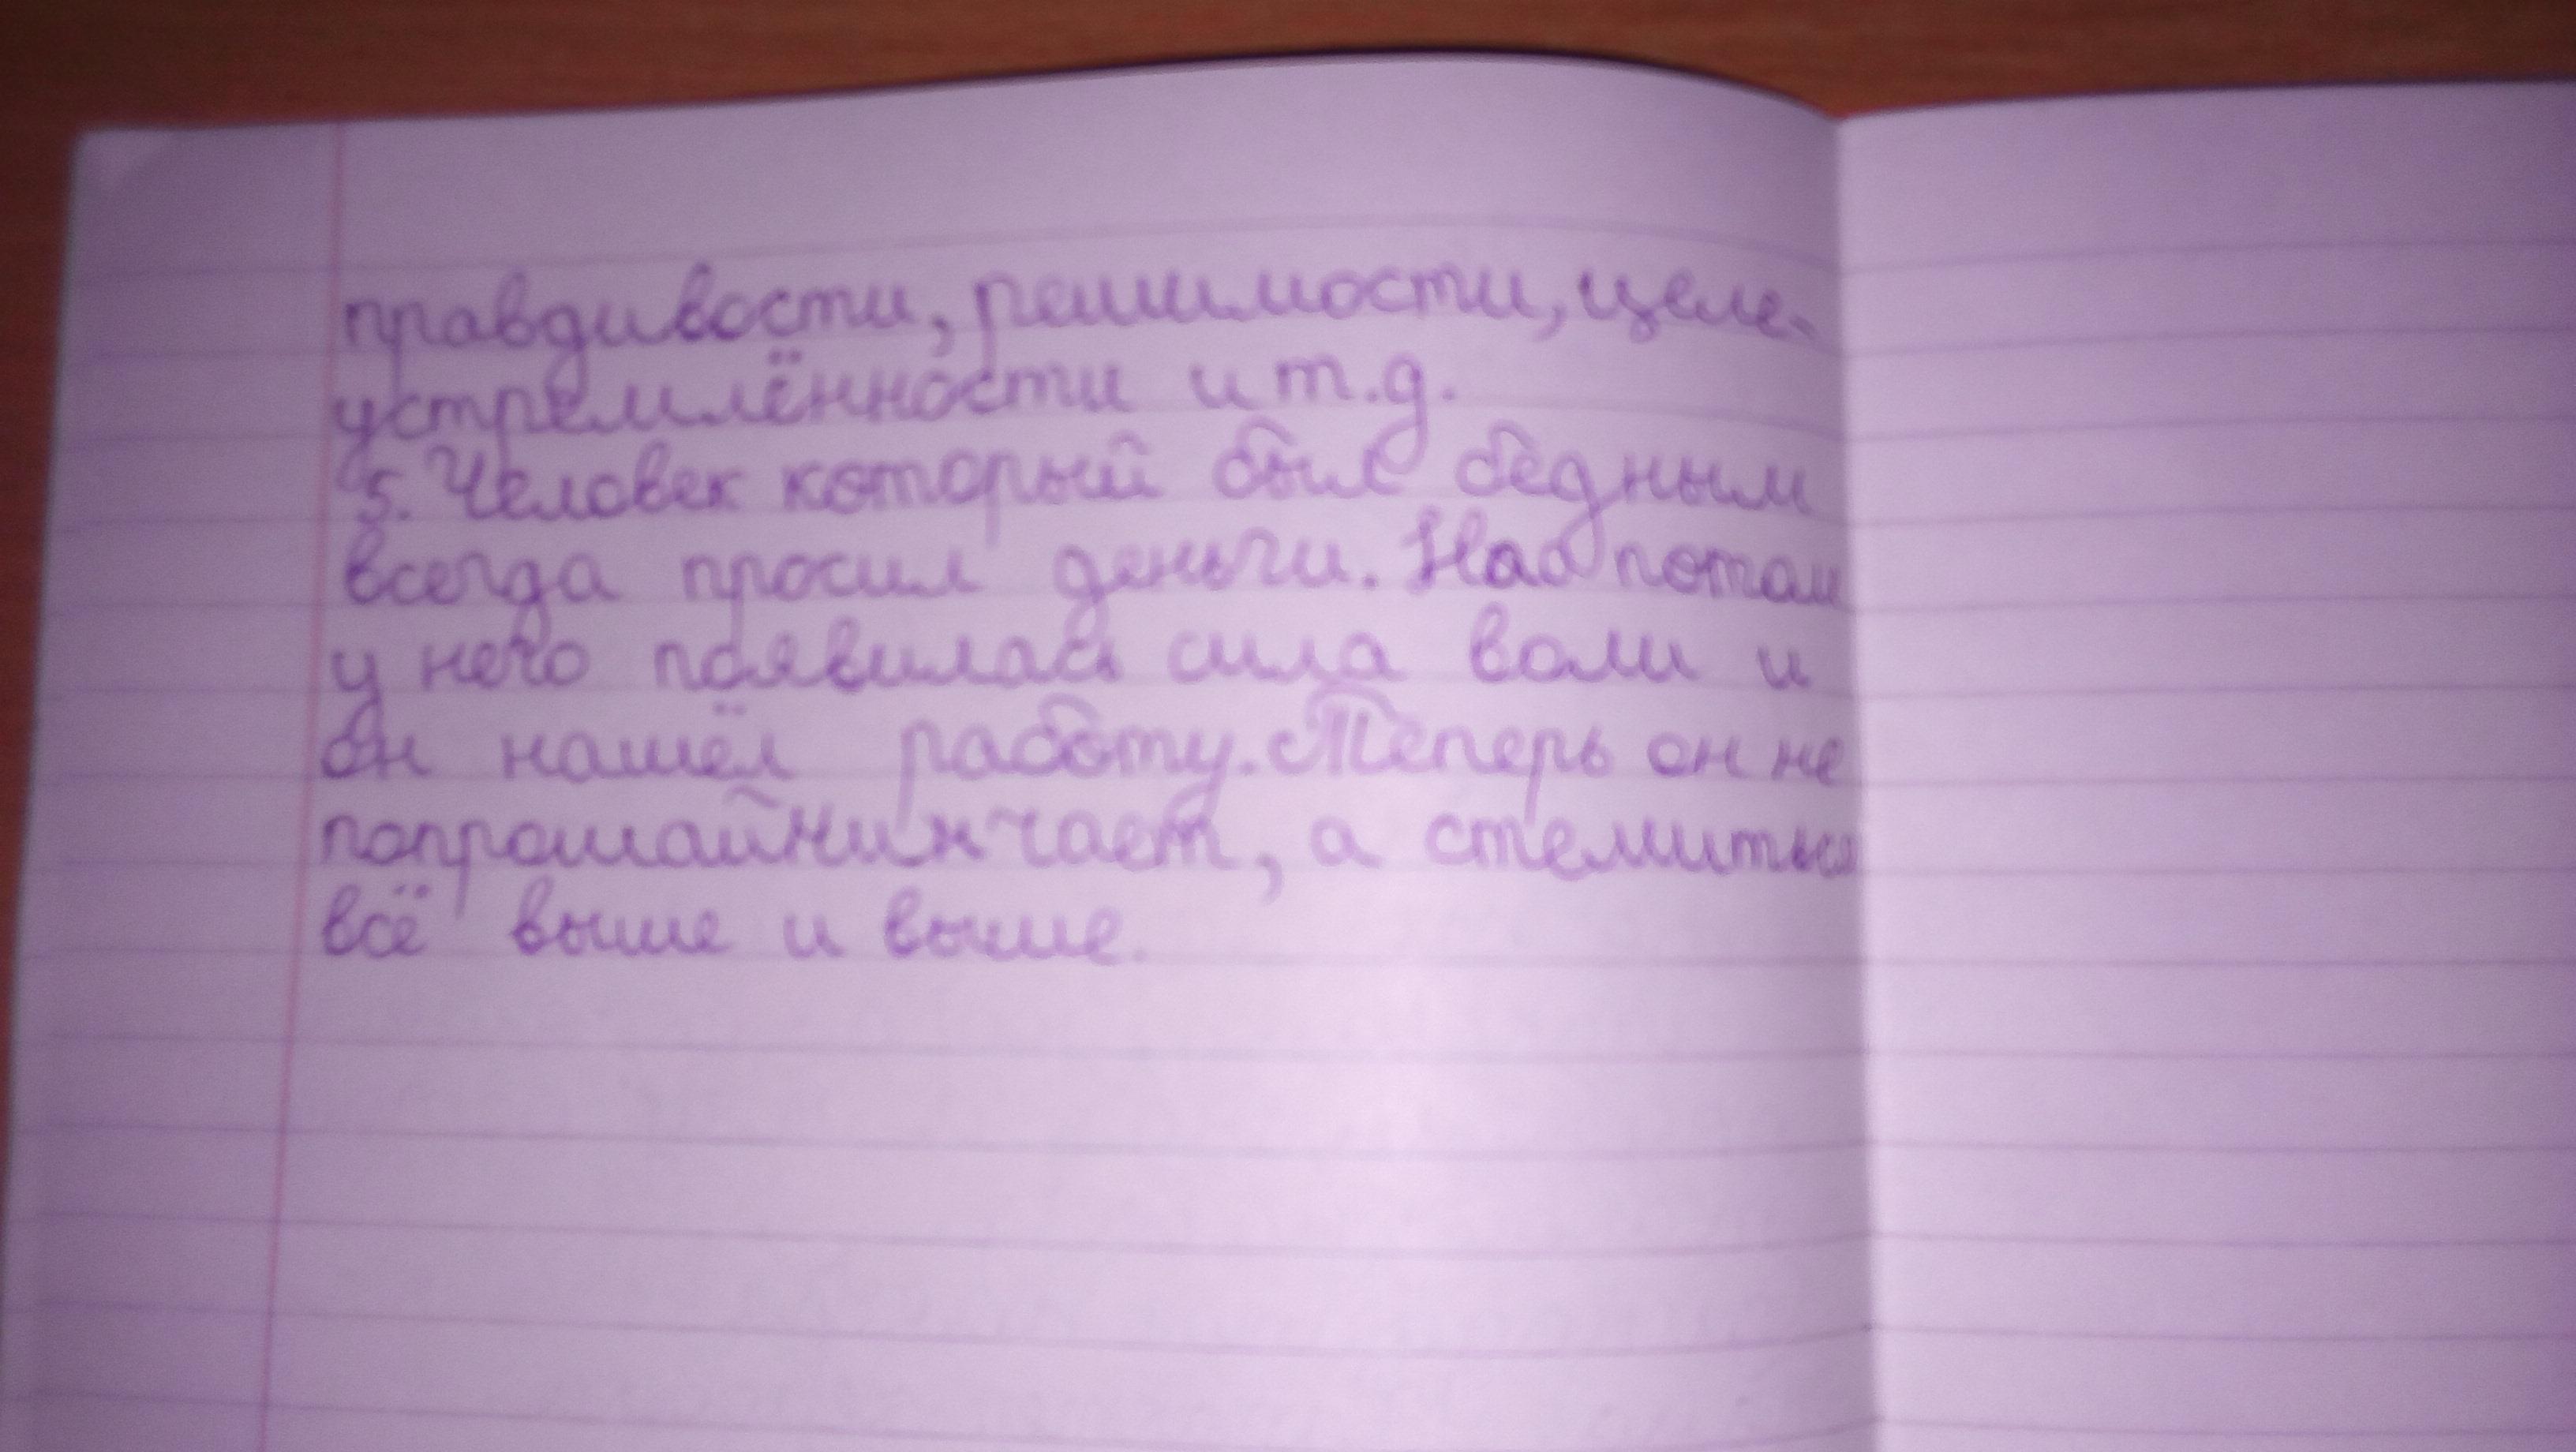 правдивости, решимости, целе-
устремлённости и т.д.
5. Человек который был бедным
всегда просил деньги. потом
у него появилась сила воли и
он нашёл работу. Теперь он не
попрошайнинчает, а стемиться
всё выше и выше.